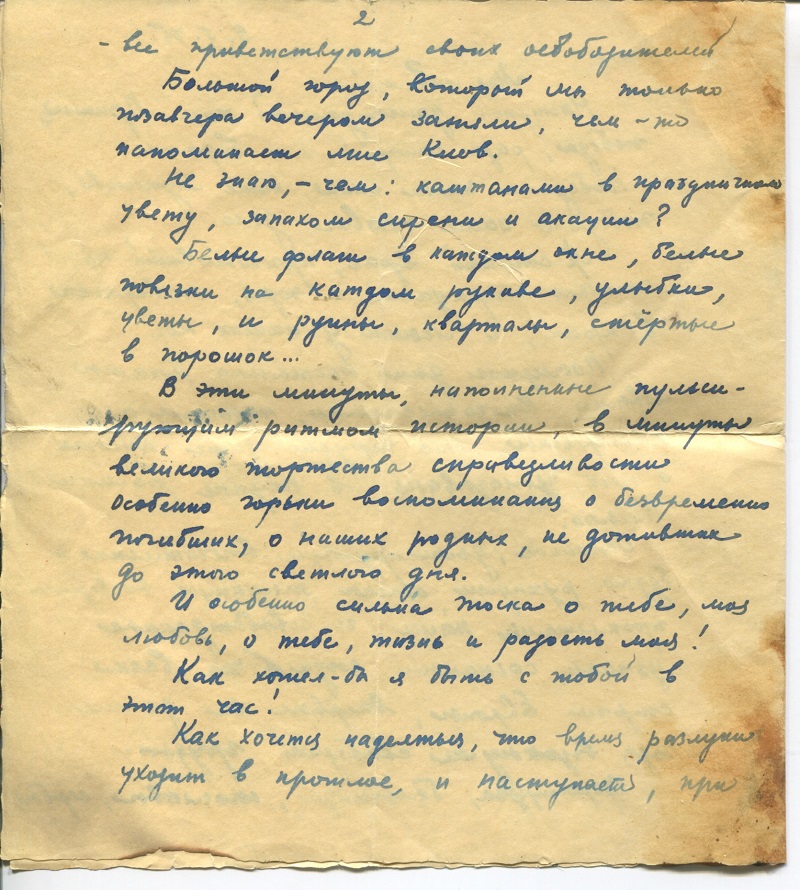 2
- все приветствуют своих освободителей
Большой город, который мы только
позавчера вечером заняли, чем-то
напоминает мне Киев.
Не знаю, - чем: каштанами в праздничном
цвету, запахом сирени и акации?
Белые флаги в каждом окне, белые
повязки на каждом рукаве, улыбки,
цветы, и руины, кварталы, стёртые
в порошок...
В эти минуты, наполненные пульси-
рующим ритмом истории, в минуты
великого торжества справедливости
особенно горьки воспоминания о безвременно
погибших, о наших родных, не доживших
до этого светлого дня.
И особенно сильна тоска о тебе, моя
любовь, о тебе, жизнь и радость моя!
Как хотел-бы я быть с тобой в
этот час!
Как хочется надеяться, что время разлуки
уходит в прошлое, и наступает, при